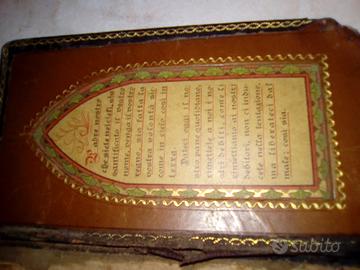 Padre nostro
che siete nei cieli, sia
santificato il vostro
nome, venga il vostro
regno, sia fatta la
vostra volontà sic
come in cielo così in
terra.
Dateci oggi il no
stro pane quotidiano,
e rimetteteci i no
stri debiti, come li
rimettiamo ai nostri
debitori, non ci indu
cete nella tentazione,
ma liberateci dal
male: così sia.
subito